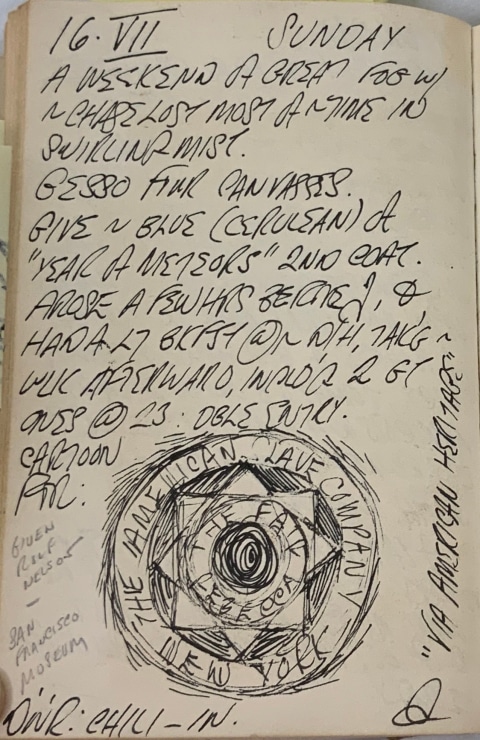 16·VII SUNDAY
A WEEKEND of GREAT FOG w/
~ CHASE LOST MOST of ~ TIME IN
SWIRLING MIST.
GESSO FOUR CANVASSES.
GIVE ~ BLUE (CERULEAN) of
"YEAR of METEORS" 2ND COAT.
AROSE A FEW HRS BEFORE , &
HAD A BKFST @ ~ D/H, TAK'G ~
WLK AFTERWARD, 2 GT
ONES @ 23. DBLE ENTRY.
CARTOON
FOR:
THE AMERICAN SLAVE COMPANY
NEW YORK
THE FAIR
REBECCA
"VIA AMERICAN HERITAGE"
GIVEN
ROLF
NELSON
—
SAN
FRANCISCO
MUSEUM
D'N'R: CHILI-IN.